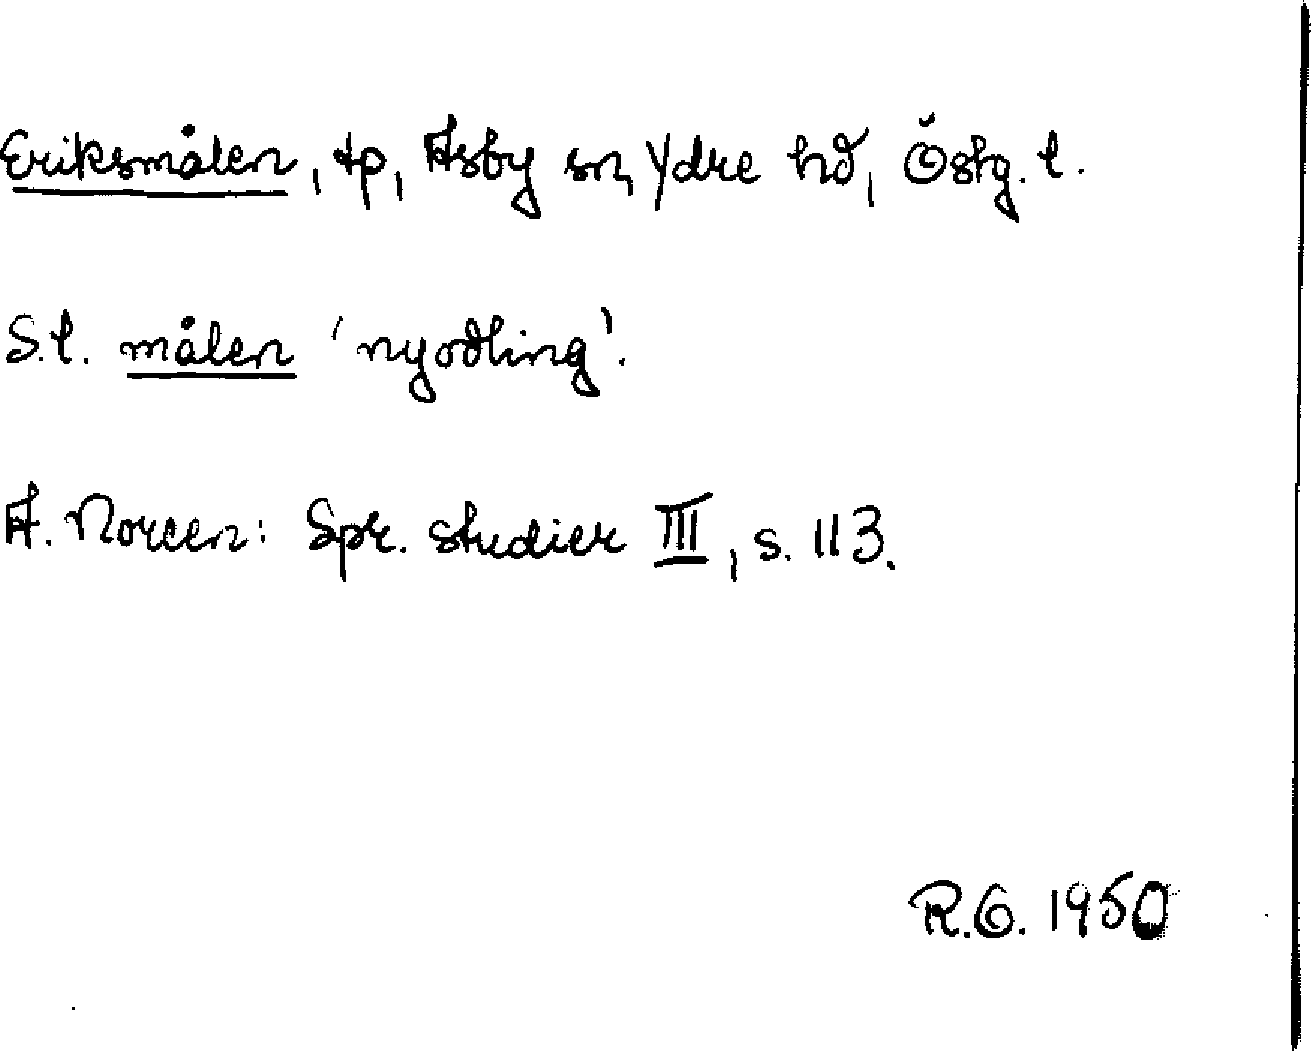 Eriksmålen, tp, Asby sn, Ydre hd, Östg. l.
S.l. målen 'nyodling'.
A. Noreen: Spr. studier III, s. 113.
R.G. 1950